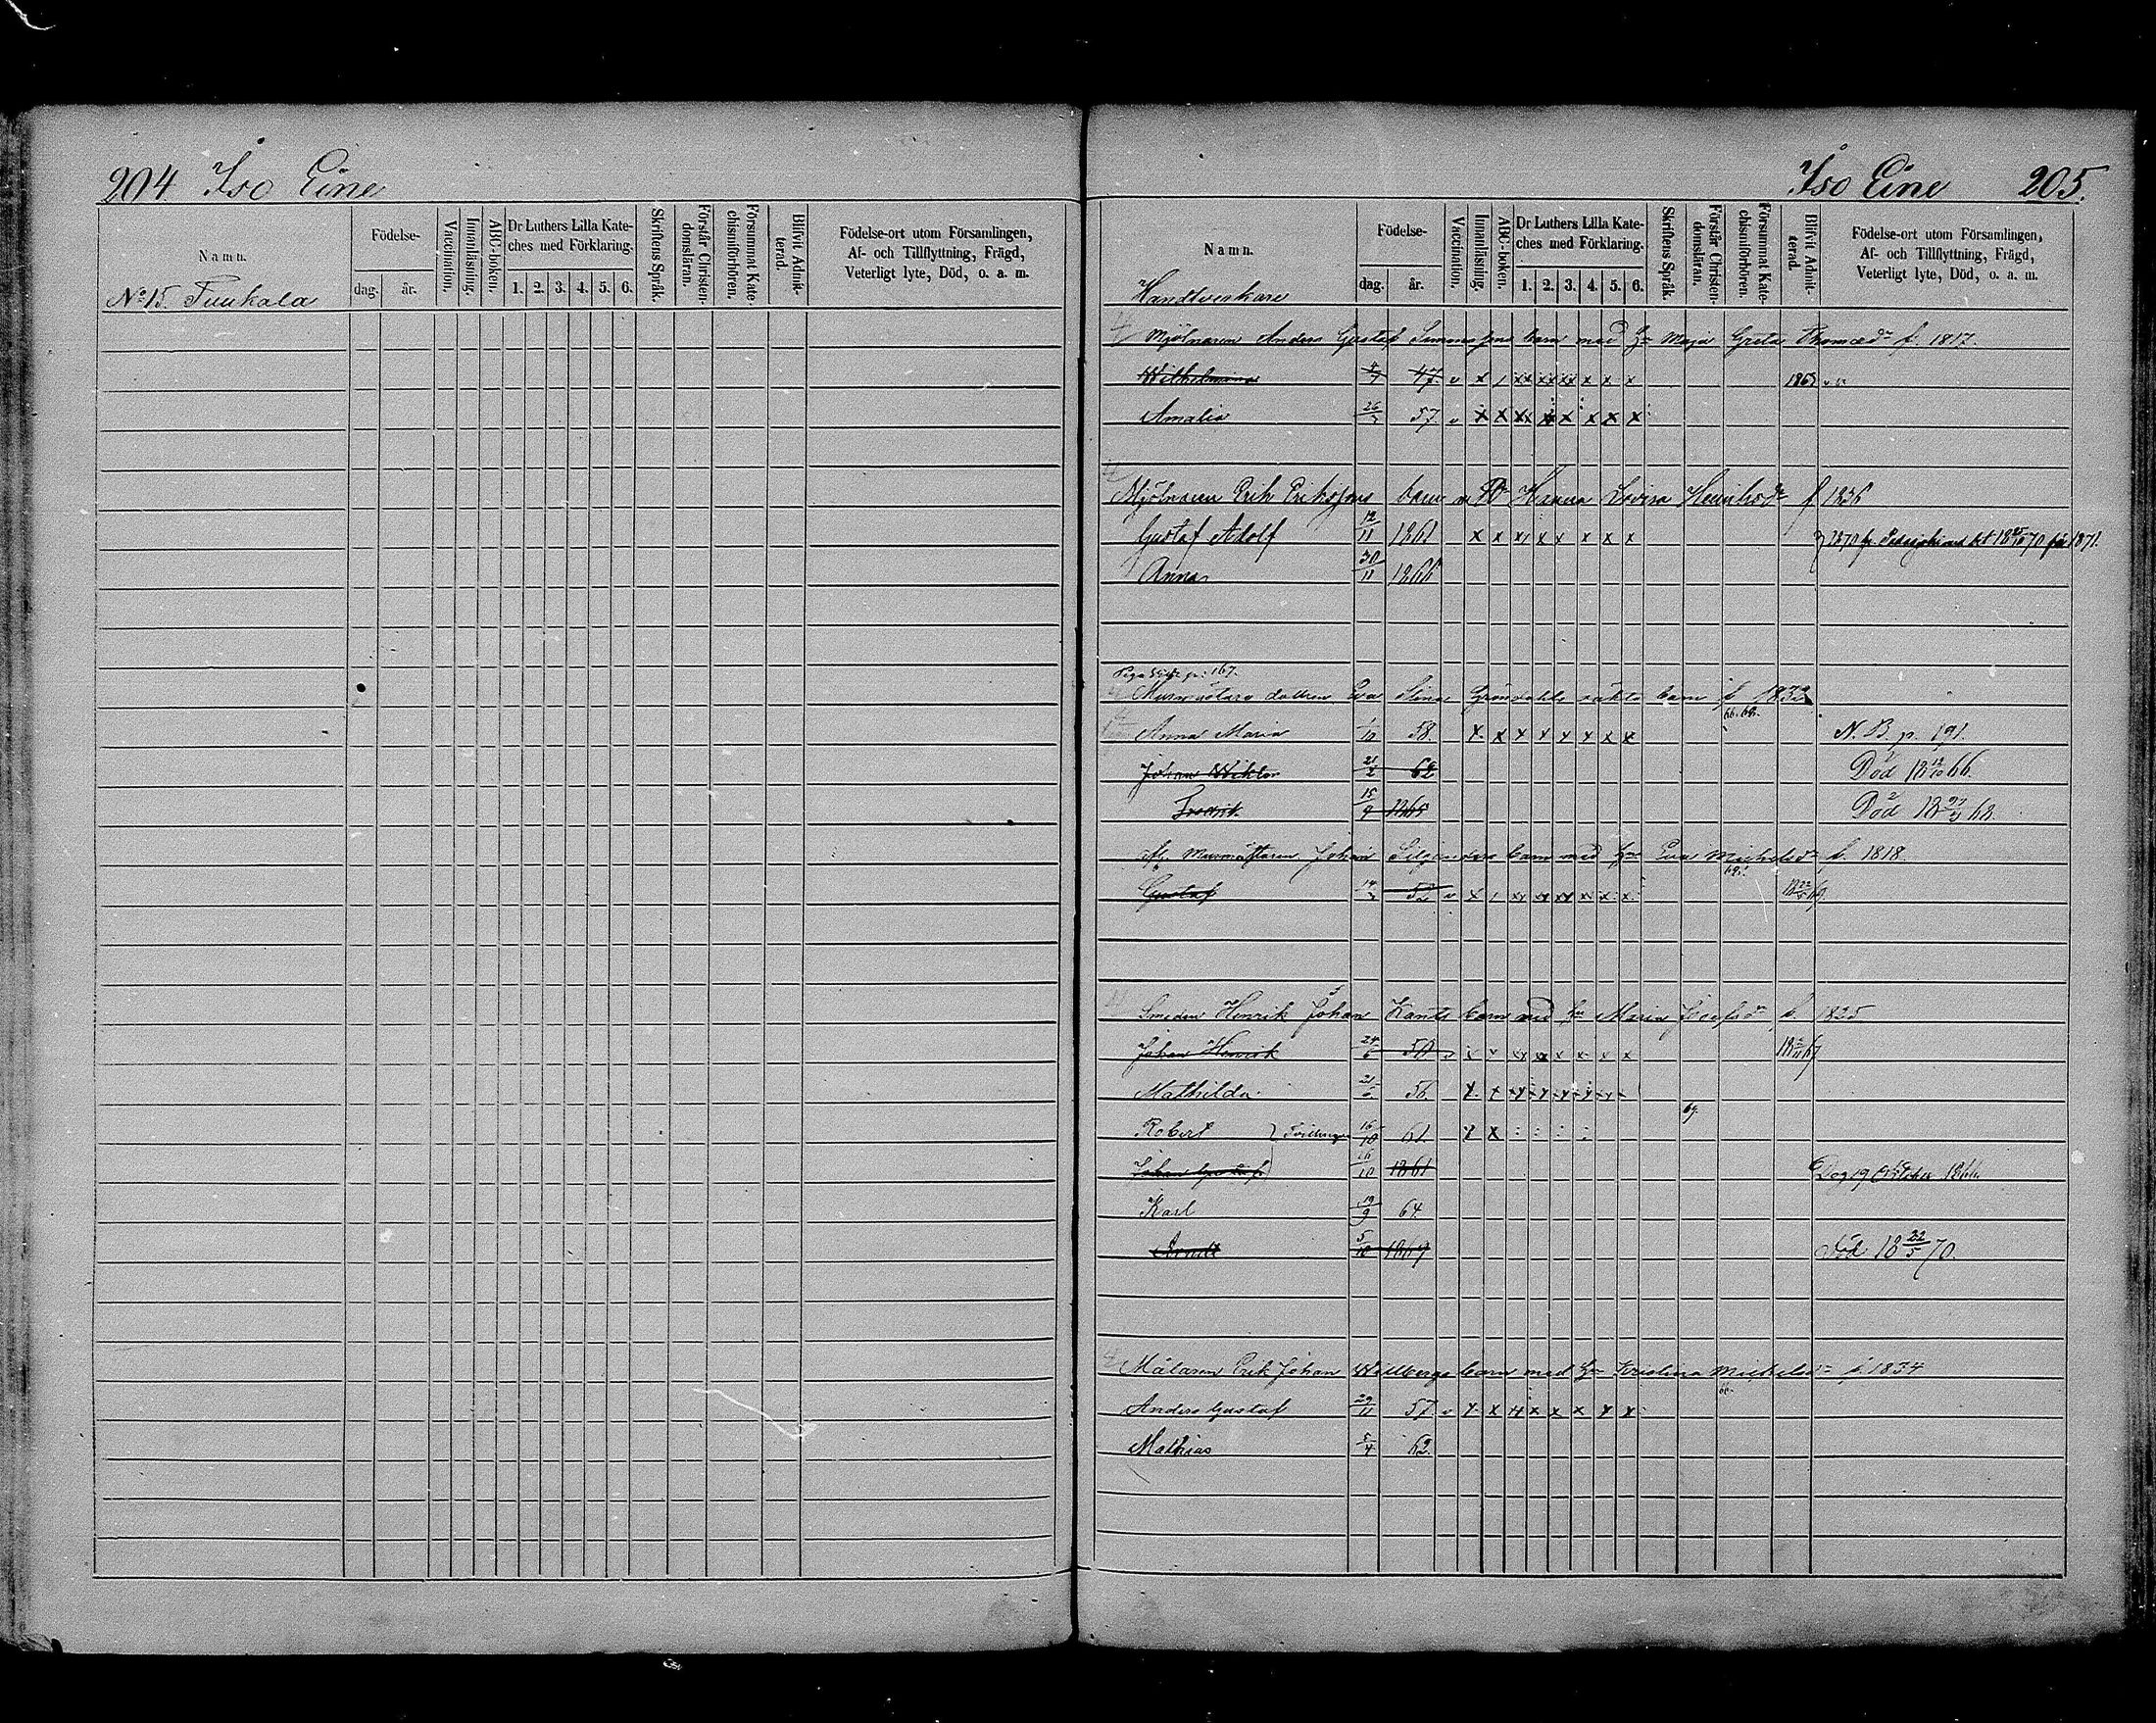 204. Iso Eine
Namn.
Födelse-
dag. år.
Vaccination.
Innanläsning.
ABC-boken.
Dr Luthers Lilla Kate-
ches med Förklaring.
1. 2. 3. 4. 5. 6.
Skriftens Språk.
Förstår Christen-
domsläran.
Försummat Kate-
chismiförhören.
Blifvit Admit-
terad.
Födelse-ort utom Församlingen,
Af- och Tillflyttning, Frägd,
Veterligt lyte, Död, o. a. m.
No 15. Tuukala
Iso Eine 205.
Namn.
Födelse-
dag. år.
Vaccination.
Innanläsning.
ABC-boken.
Dr Luthers Lilla Kate-
ches med Förklaring.
1. 2. 3. 4. 5. 6.
Skriftens Språk.
Förstår Christen-
domsläran.
Försummat Kate-
chismiförhören.
Blifvit Admit-
terad.
Födelse-ort utom Församlingen,
Af- och Tillflyttning, Frägd,
Veterligt lyte, Död, o. a. m.
Handtverkare
Mjölnaren Anders Gustaf Simonssons barn med H. Maja Greta Thomædr f. 1817.
Wilhelmina 47. v x / xx xx xx x x x
Amalia 26 57. v x x xx x x x x x
Mjölnaren Erik Erikssons barn m H. Hanna Lovisa Henriksdr f 1836
Gustaf Adolf 12/11 1861 x x x x x x x x
Anna 30/11 1866
p. 167.
Murmästare dottren Eva Stina Gröndahls oäkta barn f.
66. 68.
Anna Maria 1/10 58. x. x x x x x x x N. B. p. 191.
Johan Wiktor 21/2 62 Död 18 12/10 66.
Fredrik 15/9 1865 Död 18 68.
Murmästaren Johan barn med H. Eva Michelsdr f. 1818.
69.
Gustaf 14 52 v x / xx xx xx x x x
Smeden Henrik Johan barn med H. Maria Josefsdr f. 1825
Johan Henrik 24/6 50 x x xx x x x x x
Mathilda 56. x x x x x x x
69.
Robert } Tvillingar 16/10 61 x x
Johan Gustaf 16/10 1861 Dog 19 October 1866.
Karl 19/9 64.
5/10 1869 död 18 22/5 70.
Målaren Erik Johan Wellbergs barn med H. Kristina Mickelsdr f. 1834
Anders Gustaf 29/11 57 v x x x x x x x x
Mathias 5/4 62.